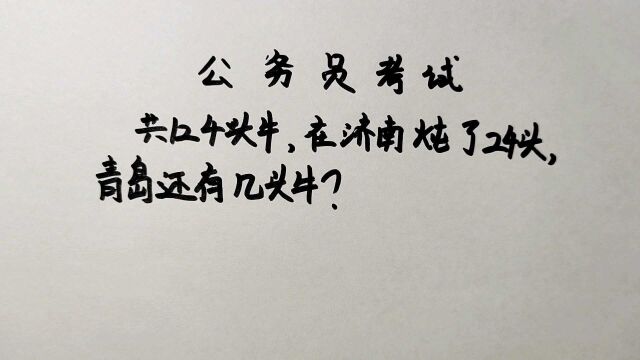 公务员考试
共124头牛,在济南炖了24头,
青岛还有几头牛?